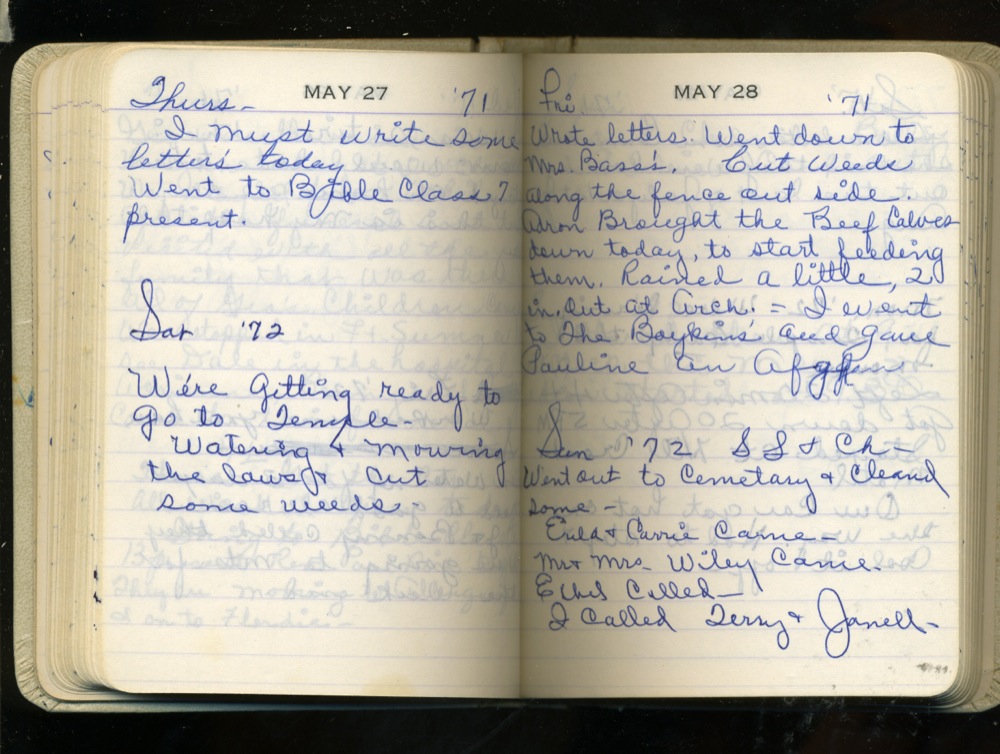 MAY 27
Thurs- '71
I must write some
letters today
Went to Bible Class 7
present.
Sat '72
We're Gitting ready to
Go to Temple-
Watering & mowing
the laws & cut
some weeds-
MAY 28
Fri. '71
Wrote letters. Went down to
Mrs. Bass's. Cut Weeds
along the fence out side.
Adron Brought the Beef Calves
down today, to start feeding
them. Rained a little, 2
in. out at Arch. = I went
to The Boykins' and gave
Pauline an Afghan
Sun '72 SS & Ch-
Went out to Cemetary & Cleand
some-
& Carrie Came-
Mr & Mrs. Wiley Came.
Ethel Called-
I Called Terry & Janell-